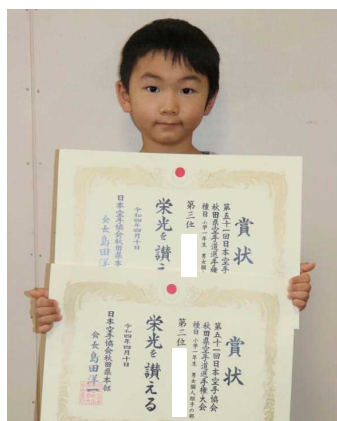 賞状
第五十一回日本空手
秋田県空手道選手権
種目 小学一年生 男女個人
第三位
栄光を讃え
令和四年四月十日
日本空手協会秋田県本
会長 島田洋
賞状
第五十一回日本空手協会
秋田県空手道選手権大会
種目 小学一年生 男女個人組手の部
第二位
栄光を讃える
令和四年四月十日
日本空手協会秋田県本部
会長 島田洋一